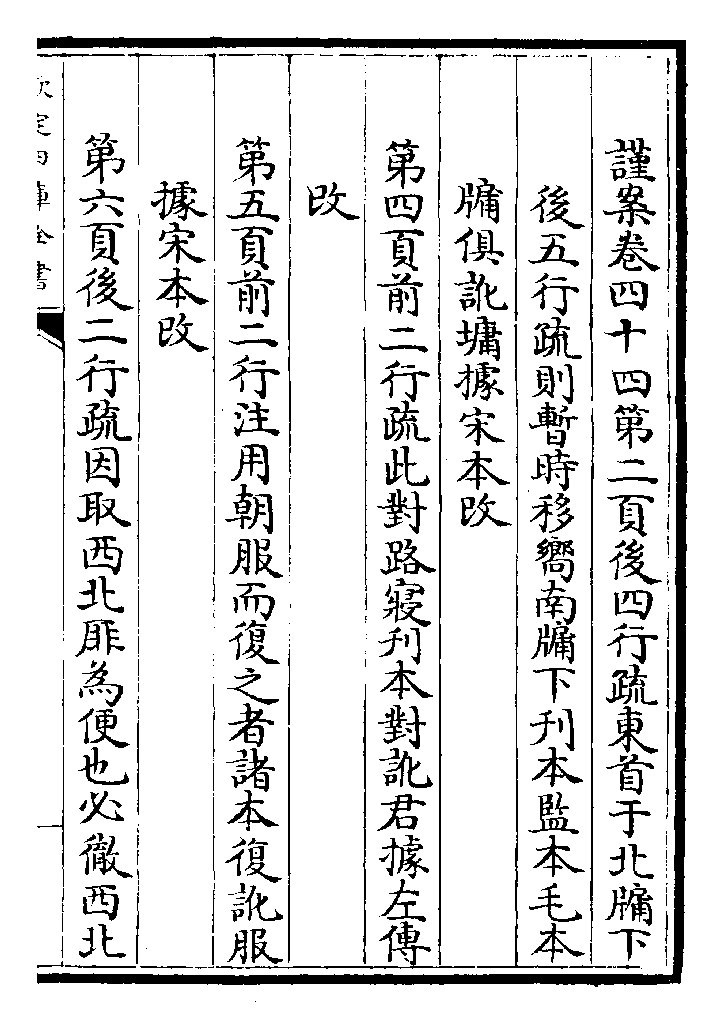 謹案卷四十四第二頁後四行疏東首于北牖下
後五行疏則暫時移嚮南牖下刋本監本毛本
牖俱訛墉據宋本改
第四頁前二行疏此對路寢刋本對訛君據左傳
改
第五頁前二行注用朝服而復之者諸本復訛服
據宋本改
第六頁後二行疏因取西北厞為便也必徹西北
欽定四庫全書